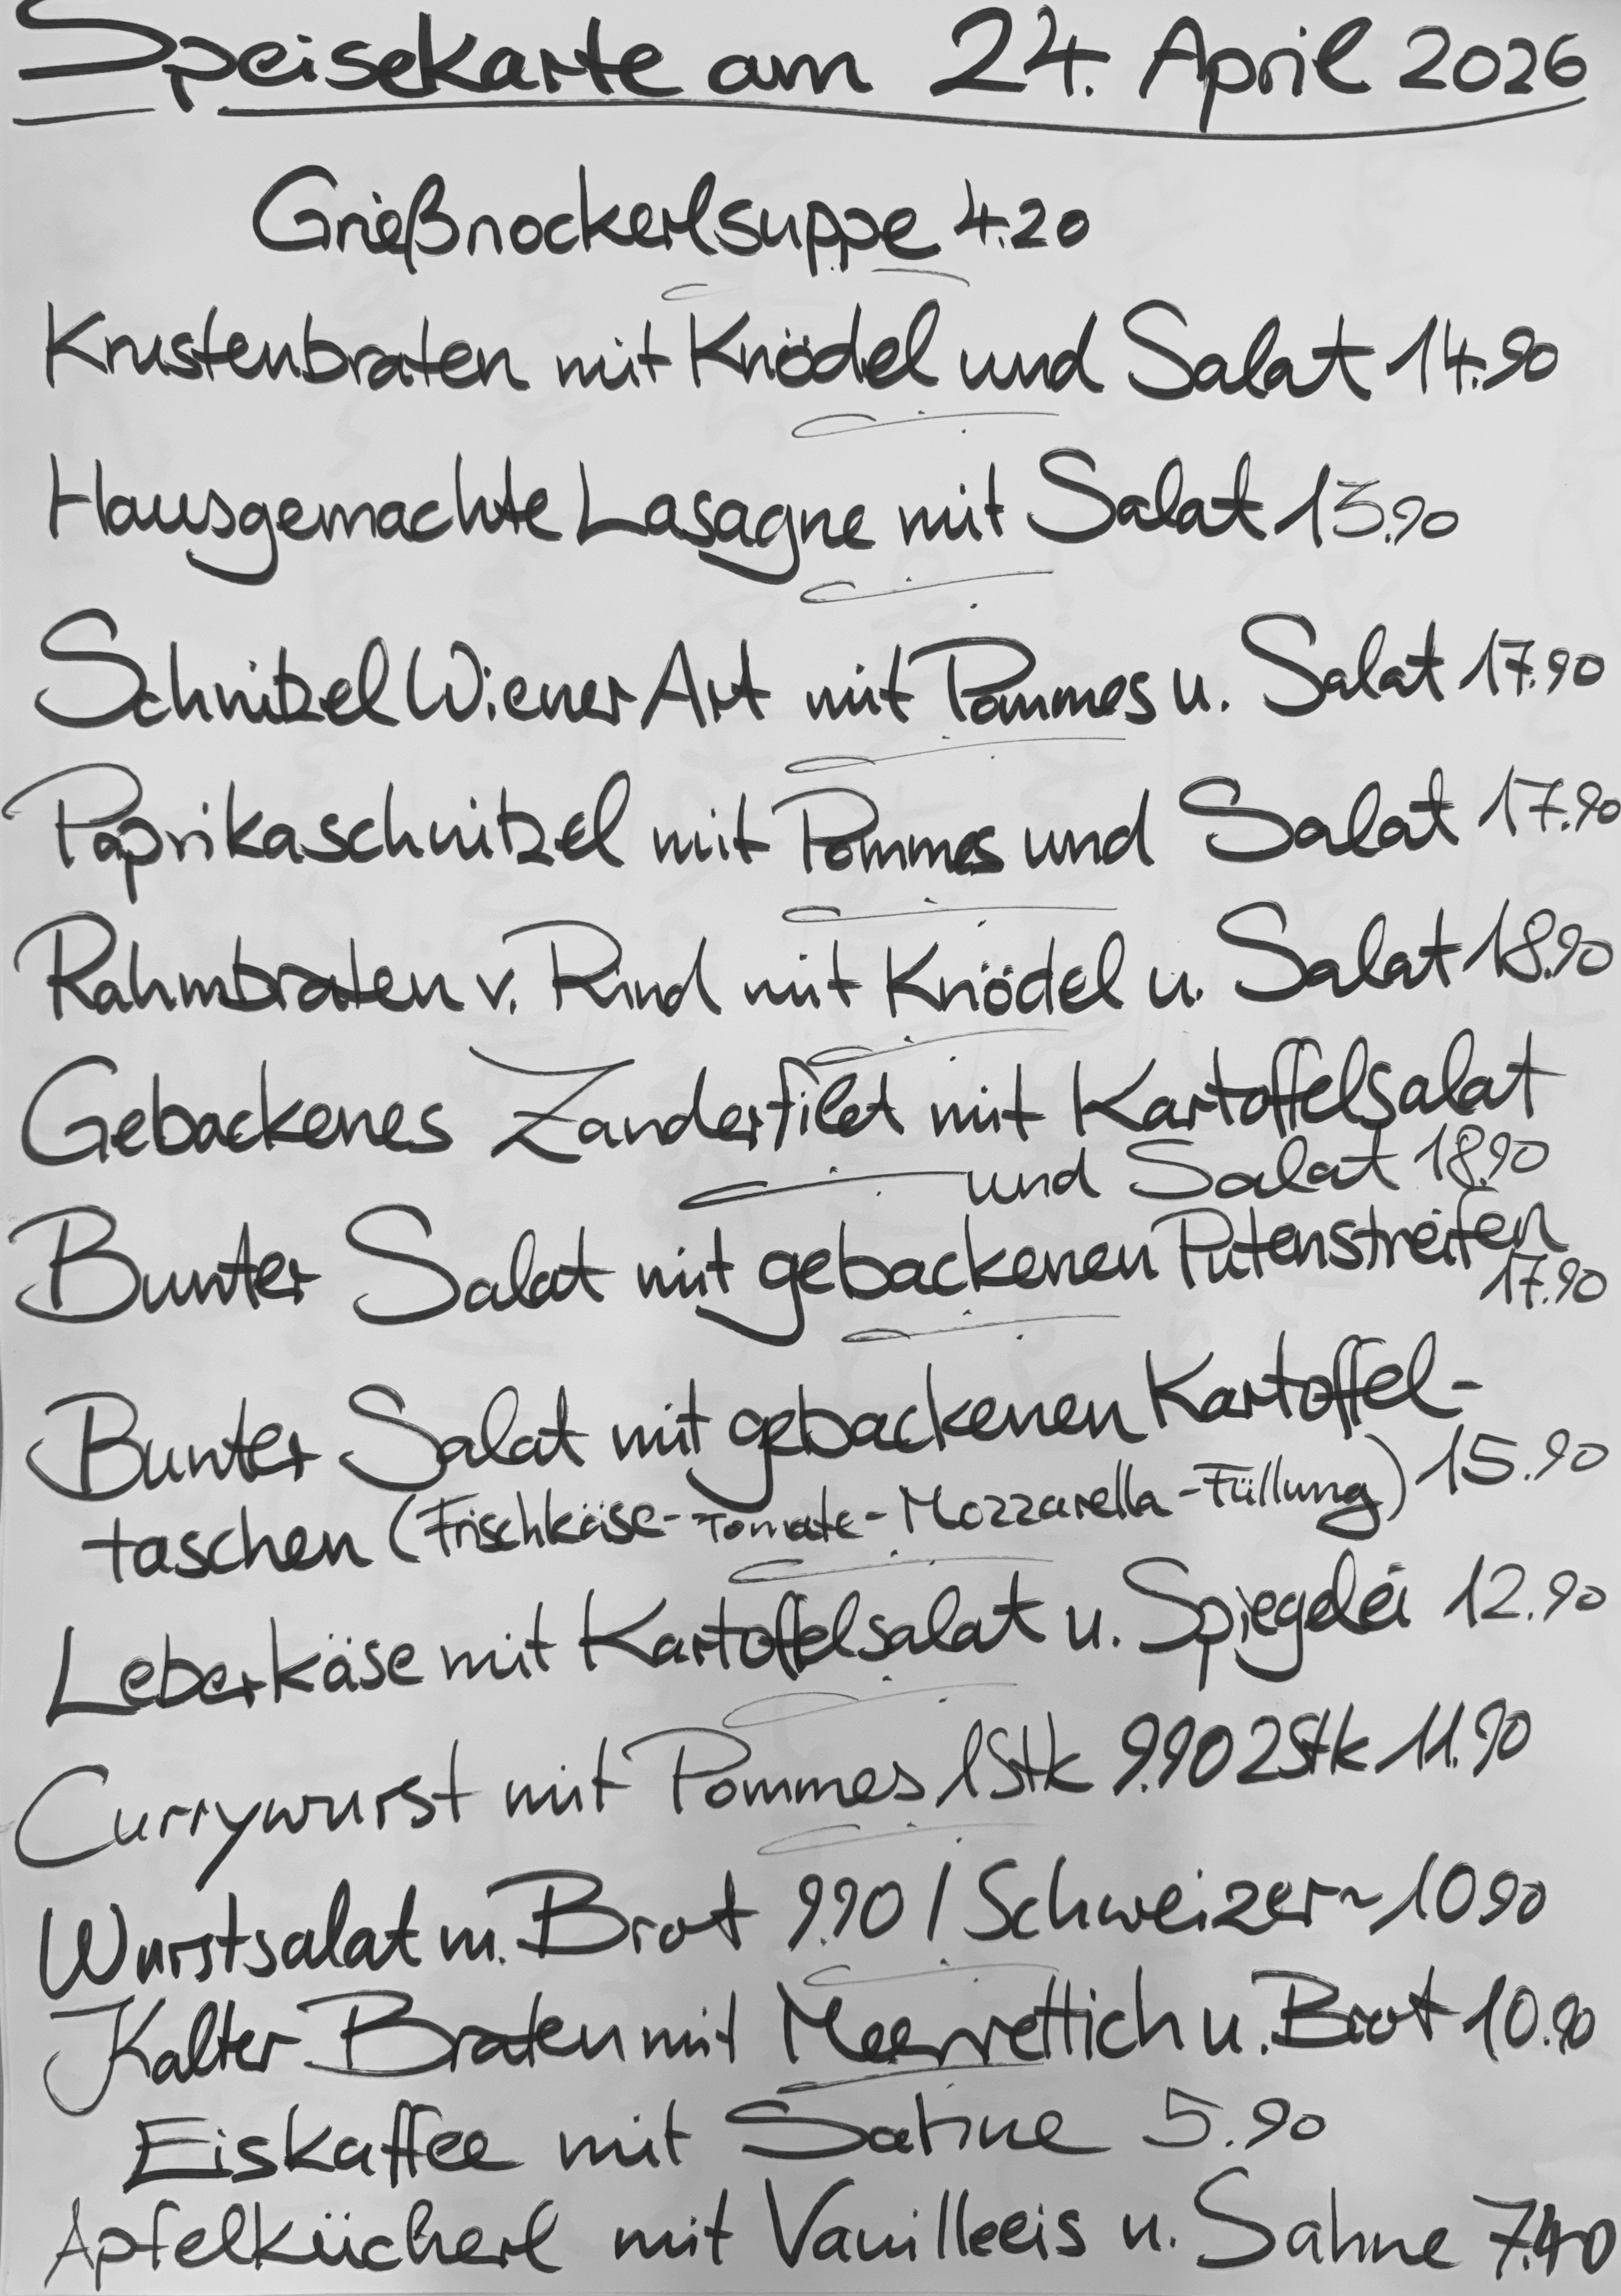 Speisekarte am 24. April 2026
Grießnockerlsuppe 4.20
Krustenbraten mit Knödel und Salat 14.90
Hausgemachte Lasagne mit Salat 13.90
Schnitzel Wiener Art mit Pommes u. Salat 17.90
Paprikaschnitzel mit Pommes und Salat 17.90
Rahmbraten v. Rind mit Knödel u. Salat 18.90
Gebackenes Zanderfilet mit Kartoffelsalat
und Salat 18.90
Bunter Salat mit gebackenen Putenstreifen
17.90
Bunter Salat mit gebackenen Kartoffel-
taschen (Frischkäse-Tomate-Mozzarella-Füllung) 15.90
Leberkäse mit Kartoffelsalat u. Spiegelei 12.90
Currywurst mit Pommes 1Stk 9.90 2Stk 11.90
Wurstsalat m. Brot 9.90 / Schweizer~ 10 90
Kalter Braten mit Meerrettich u. Brot 10.90
Eiskaffee mit Sahne 5.90
Apfelkücherl mit Vanilleeis u. Sahne 7.40